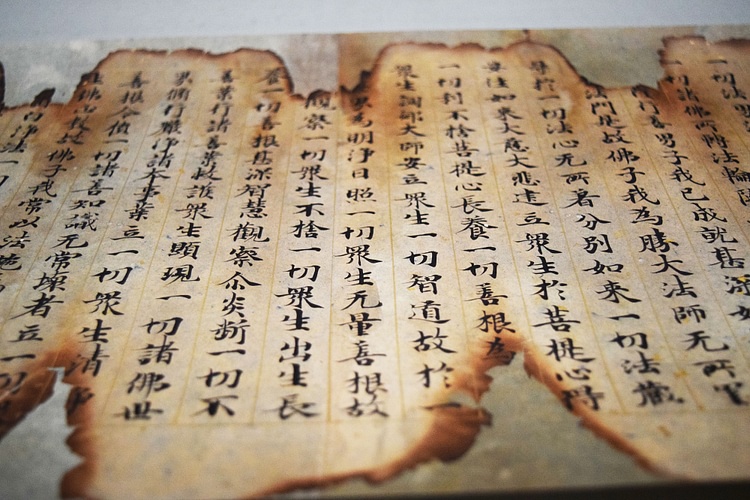 一切法
一切諸佛所轉法輪
行善男子我已成就甚深如
法門是故佛子我為勝大法師无所
等於一切法心无所著分別如來一切法藏
安住如來大慈大悲建立眾生於菩提心時
一切利不捨菩提心長養一切善根為
眾生調御大師安立眾生一切智道故於一
界為明淨日照一切眾生无量善根故
觀察一切眾生不捨一切眾生出生長
養一切善根甚深智慧觀察尒炎斷一切不
善業行諸善業救護眾生顯現一切諸佛世
界脩行嚴淨諸本事業立一切眾生清淨
善根令值一切諸善知識无常壞者立一切
佛正教故佛子我常以法施
白淨法一切